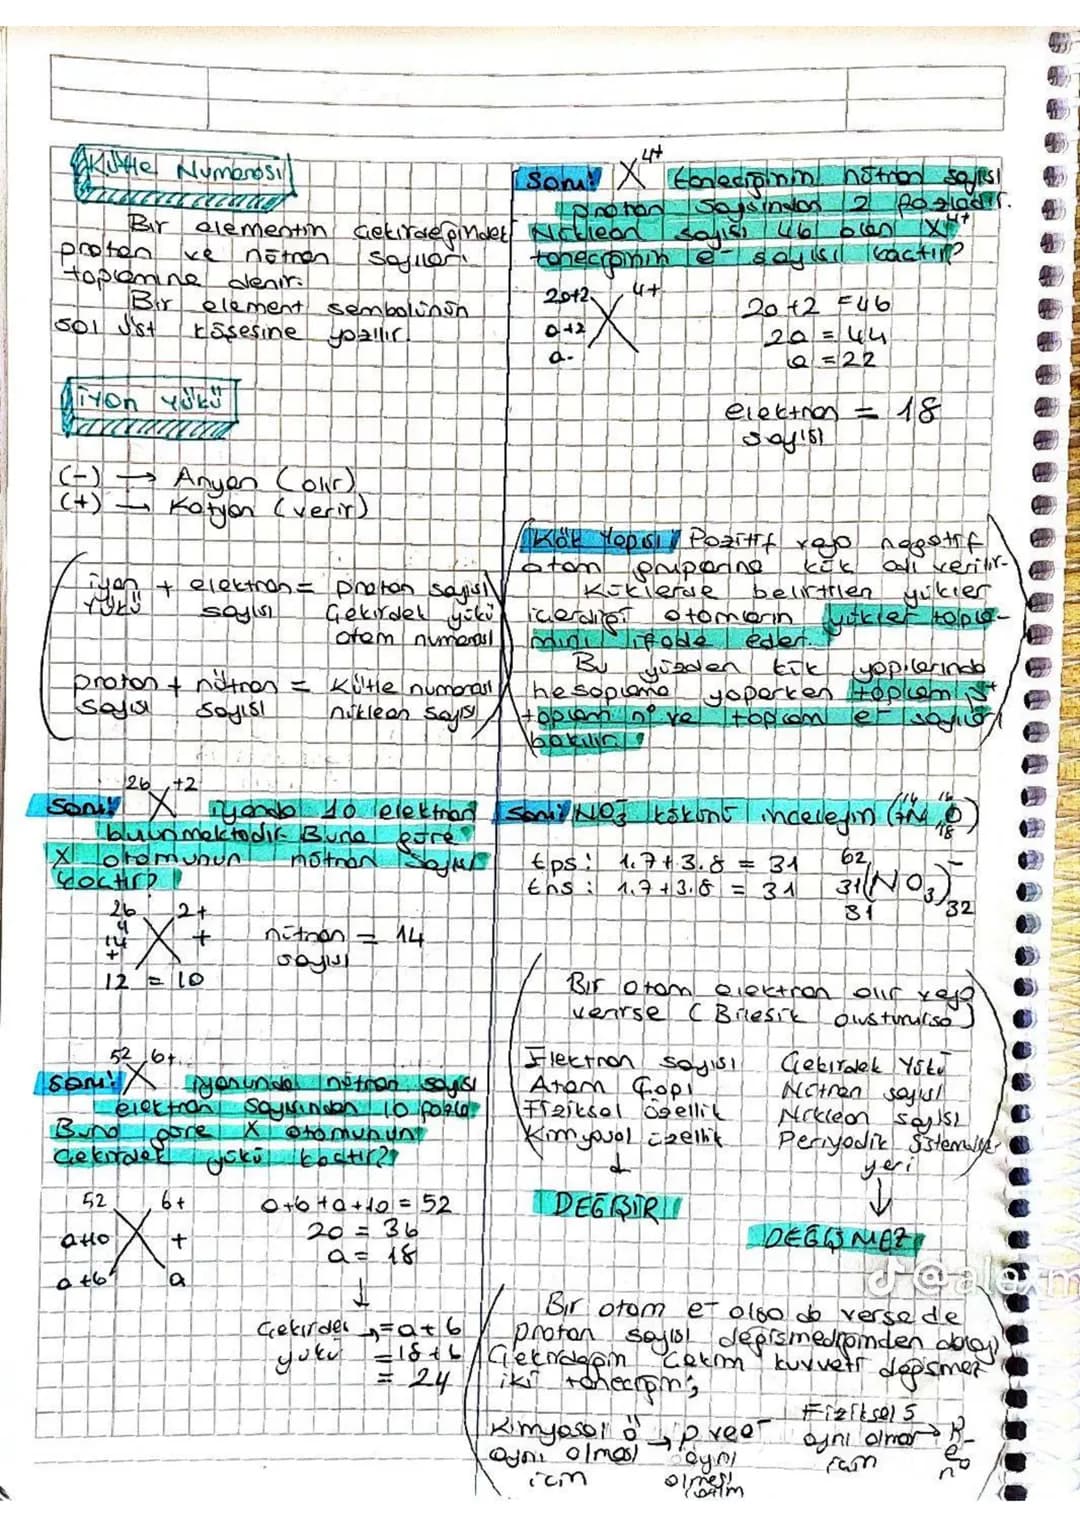 Kütle Numarası
Bir elementin çekirdeğindeki
proton ve nötron sayıları
toplamına denir.
Bir element sembolünün
sol üst köşesine yazılır.
İyon Yükü
(-) → Anyon (alır)
(+) → Katyon (verir)
iyon + elektron = proton sayısı
yükü sayısı Çekirdek yükü
atom numarası
proton + nötron = Kütle numarası
sayısı sayısı nükleon sayısı
26 +2
Soru! X iyonda 10 elektron
bulunmaktadır. Buna göre
X atomunun nötron sayısı
kaçtır?
26 2+
14 X + nötron = 14
+ sayısı
12 = 10
52 6+
Soru! X iyonunda nötron sayısı
elektron sayısından 10 fazla
Buna göre X atomunun
çekirdek yükü kaçtır?
52 6+ a+6+a+10 = 52
a+10 X + 2a = 36
a+6 a a = 18
↓
Çekirdek → = a+6
yükü = 18+6
= 24
Soru! X4+ taneciğinin nötron sayısı
proton sayısından 2 fazladır.
Nükleon sayısı 46 olan X4+
taneciğinin e- sayısı kaçtır?
2a+2 4+ 2a+2 = 46
a+2 X 2a = 44
a a = 22
elektron = 18
sayısı
Kök Yapısı Pozitif veya negatif
atom gruplarına kök adı verilir.
Köklerde belirtilen yükler
içerdiği atomların yükler topla-
mını ifade eder.
Bu yüzden kök yapılarında
hesaplama yaparken toplam p+
toplam n° ve toplam e- sayısına
bakılır.
Soru! NO3- kökünü inceleyin (14 7N 16 8O)
tps: 1.7+3.8 = 31 62
tns: 1.7+3.8 = 31 31(NO3)-
31 32
Bir atom elektron alır veya
verirse (Bileşik oluşturulursa)
Elektron sayısı Çekirdek Yükü
Atom Çapı Nötron sayısı
Fiziksel özellik Nükleon sayısı
Kimyasal özellik Periyodik Sistemdeki
yeri
↓ ↓
DEĞİŞİR
DEĞİŞMEZ
@alexm
Bir atom e- alsa da verse de
proton sayısı değişmediğinden dolayı
Çekirdeğin çekim kuvveti değişmez
iki taneciğin;
Kimyasal ö → p ve e- Fiziksel ö → p
aynı olması aynı aynı olması e-
için olması lazım için n°